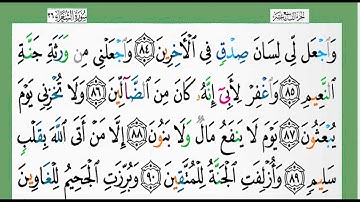 الجزء التاسع عشر سُورَةُ الشُّعَرَاءِ ٢٦
وَٱجْعَل لِّى لِسَانَ صِدْقٍ فِى ٱلْأَخِرِينَ ٨٤ وَٱجْعَلْنِى مِن وَرَثَةِ جَنَّةِ
ٱلنَّعِيمِ ٨٥ وَٱغْفِرْ لِأَبِىٓ إِنَّهُۥ كَانَ مِنَ ٱلضَّآلِّينَ ٨٦ وَلَا تُخْزِنِى يَوْمَ
يُبْعَثُونَ ٨٧ يَوْمَ لَا يَنفَعُ مَالٌ وَلَا بَنُونَ ٨٨ إِلَّا مَنْ أَتَى ٱللَّهَ بِقَلْبٍ
سَلِيمٍ ٨٩ وَأُزْلِفَتِ ٱلْجَنَّةُ لِلْمُتَّقِينَ ٩٠ وَبُرِّزَتِ ٱلْجَحِيمُ لِلْغَاوِينَ